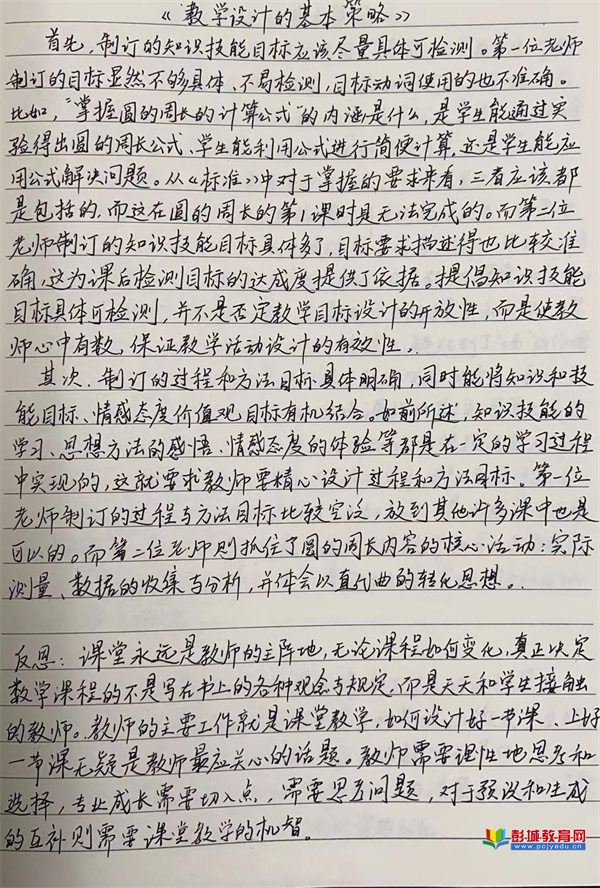 《教学设计的基本策略》
首先,制订的知识技能目标应该尽量具体可检测。第一位老师
制订的目标显然不够具体、不易检测,目标动词使用的也不准确。
比如,“掌握圆的周长的计算公式”的内涵是什么,是学生能通过实
验得出圆的周长公式、学生能利用公式进行简便计算,还是学生能应
用公式解决问题。从《标准》中对于掌握的要求来看,三者应该都
是包括的,而这在圆的周长的第1课时是无法完成的。而第二位
老师制订的知识技能目标具体多了,目标要求描述得也比较准
确,这为课后检测目标的达成度提供了依据。提倡知识技能
目标具体可检测,并不是否定教学目标设计的开放性,而是使教
师心中有数,保证教学活动设计的有效性。
其次,制订的过程和方法目标具体明确,同时能将知识和技
能目标、情感态度价值观目标有机结合。如前所述,知识技能的
学习、思想方法的感悟、情感态度的体验等都是在一定的学习过程
中实现的,这就要求教师要精心设计过程和方法目标。第一位
老师制订的过程与方法目标比较空泛,放到其他许多课中也是
可以的。而第二位老师则抓住了圆的周长内容的核心活动:实际
测量、数据的收集与分析,并体会以直代曲的转化思想。
反思:课堂永远是教师的主阵地,无论课程如何变化,真正决定
数学课程的不是写在书上的各种观念与规定,而是天天和学生接触
的教师。教师的主要工作就是课堂教学,如何设计好一节课、上好
一节课无疑是教师最应关心的话题。教师需要理性地思考和
选择,专业成长需要切入点,需要思考问题,对于预设和生成
的互补则需要课堂教学的机智。
彭城教育网
www.pcjyedu.cn